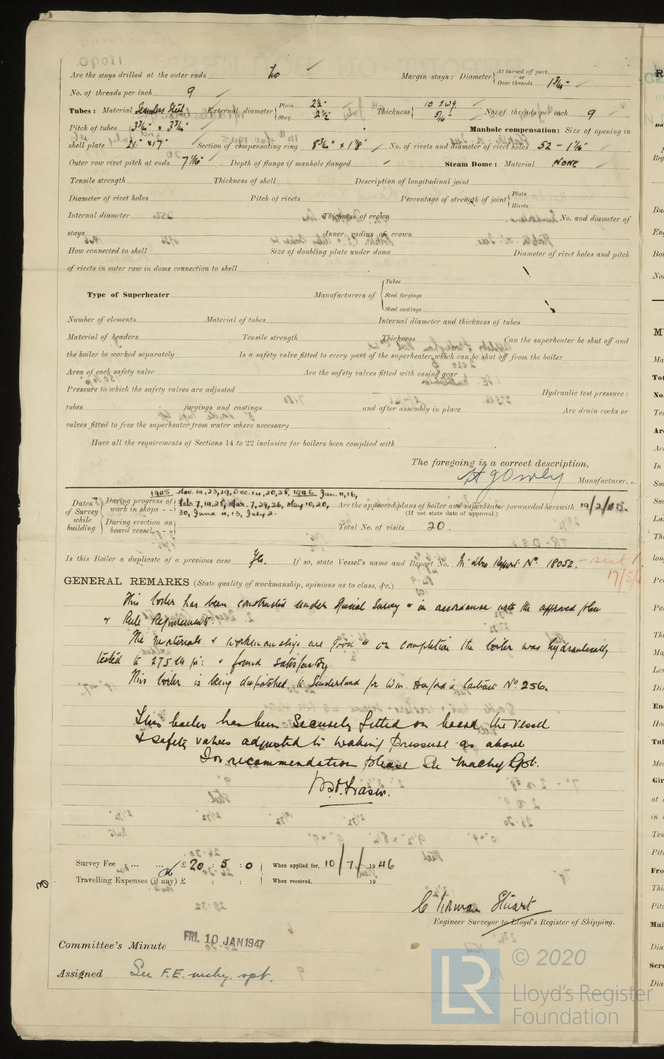 Are the stays drilled at the outer ends No Margin stays: Diameter { At turned off part, or Over threads 1 3/4"
No. of threads per inch 9
Tubes: Material Seamless Steel External diameter { Plain 2 1/2" Stay 2 1/2" Thickness { 10 swg 5/16" No. of threads per inch 9
Pitch of tubes 3 3/4" x 3 3/4" Manhole compensation: Size of opening in
shell plate 21" x 17" Section of compensating ring 8 3/4" x 1 1/8" No. of rivets and diameter of rivet holes 52 - 1 1/16"
Outer row rivet pitch at ends 7 1/16" Depth of flange if manhole flanged Steam Dome: Material NONE
Tensile strength Thickness of shell Description of longitudinal joint
Diameter of rivet holes Pitch of rivets Percentage of strength of joint { Plate Rivets
Internal diameter Thickness of crown No. and diameter of
stays Inner radius of crown
How connected to shell Size of doubling plate under dome Diameter of rivet holes and pitch
of rivets in outer row in dome connection to shell
Type of Superheater Manufacturers of { Tubes Steel forgings Steel castings
Number of elements Material of tubes Internal diameter and thickness of tubes
Material of headers Tensile strength Thickness Can the superheater be shut off and
the boiler be worked separately Is a safety valve fitted to every part of the superheater which can be shut off from the boiler
Area of each safety valve Are the safety valves fitted with easing gear
Pressure to which the safety valves are adjusted Hydraulic test pressure:
tubes forgings and castings and after assembly in place Are drain cocks or
valves fitted to free the superheater from water where necessary
Have all the requirements of Sections 14 to 22 inclusive for boilers been complied with
The foregoing is a correct description,
Manufacturer.
Dates of Survey while building { During progress of work in shops - - 1945 Nov. 14, 23, 29, Dec. 14, 20, 28, 1946 Jan. 11, 16,
Feb. 7, 14, 25, Mar. 7, 29, 26, May 10, 20, 30, June 11, 13, July 2. Are the approved plans of boiler and superheater forwarded herewith 19/2/45.
(If not state date of approval.)
During erection on board vessel - - - Total No. of visits 20.
Is this Boiler a duplicate of a previous case Yes. If so, state Vessel's name and Report No. M'dbro Report No 18052
GENERAL REMARKS (State quality of workmanship, opinions as to class, &c.)
This boiler has been constructed under Special Survey & in accordance with the approved plan
& Rule Requirements
The materials & workmanship are good & on completion the boiler was hydraulically
tested to 275 lb/in² & found satisfactory.
This boiler is being dispatched to Sunderland for Wm. Contract No 256.
This boiler has been securely fitted on board the vessel
& safety valves adjusted to working pressure as above
For recommendation please see Machy Rpt.
Survey Fee ... ... £ 20 : 5 : 0 When applied for, 10/7/1946
Travelling Expenses (if any) £ : : When received, 19
C. Norman Stuart
Engineer Surveyor to Lloyd's Register of Shipping.
Committee's Minute FRI. 10 JAN 1947
Assigned See F.E. mchy. rpt.
LR © 2020
Lloyd's Register
Foundation